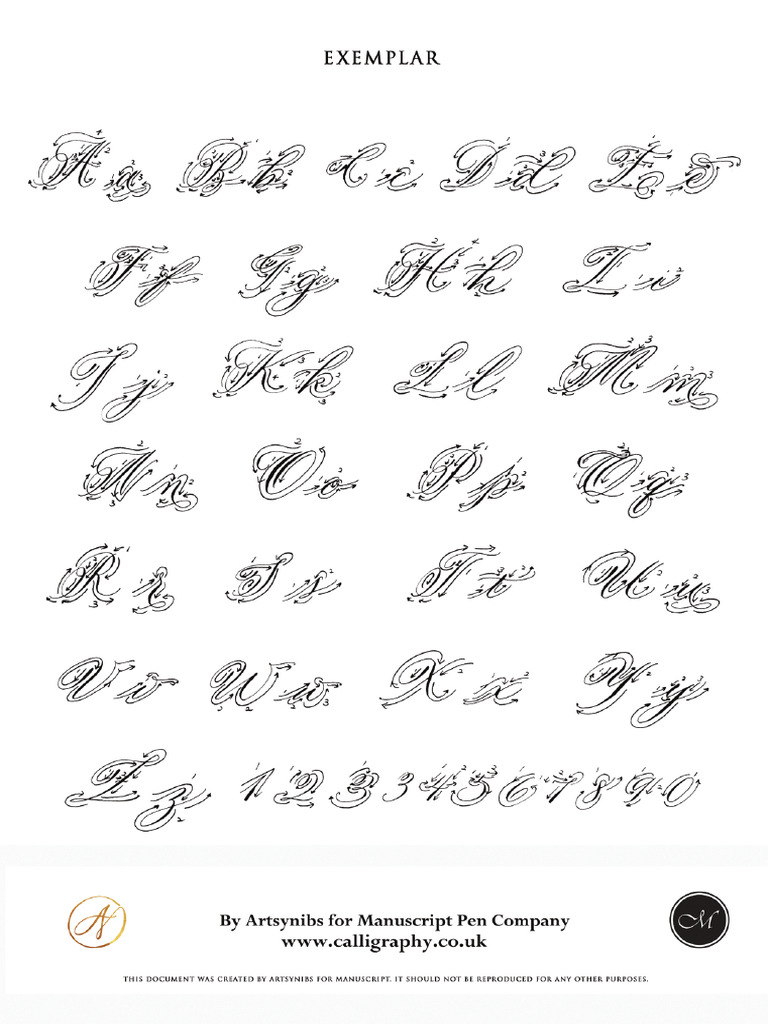 EXEMPLAR
A a B b C c D d E e
F f G g H h I i
J j K k L l M m
N n O o P p Q q
R r S s T t U u
V v W w X x Y y
Z z 1 2 3 3 4 5 6 7 8 9 0
By Artsynibs for Manuscript Pen Company
www.calligraphy.co.uk
THIS DOCUMENT WAS CREATED BY ARTSYNIBS FOR MANUSCRIPT. IT SHOULD NOT BE REPRODUCED FOR ANY OTHER PURPOSES.